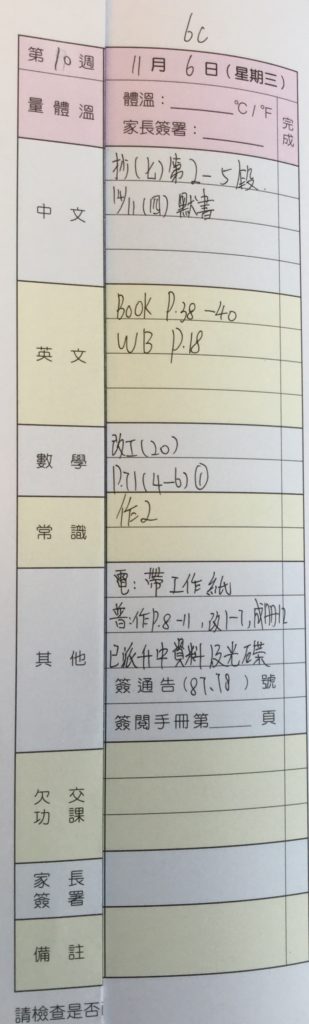 6C
第10週
11月6日(星期三)
量體溫
體溫：______℃/℉
家長簽署：______
完成
中文
抄(七)第2-5段
14/11(四)默書
英文
BOOK P.38-40
WB P.18
數學
改工(20)
P.71(4-6)①
常識
作2
其他
電：帶工作紙
普:作P.8-11,改1-7,成册12
已派升中資料及光碟
簽通告(87、78)號
簽閱手冊第______頁
欠交功課
家長簽署
備註
請檢查是否